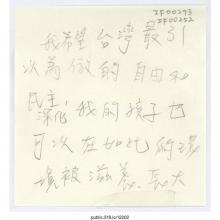 IF00293
IF00252
我希望台灣最引
以為傲的自由和
民主，
深化我的孩子也
可以在如此的環
境被滋養、長大
public.318.io/12202